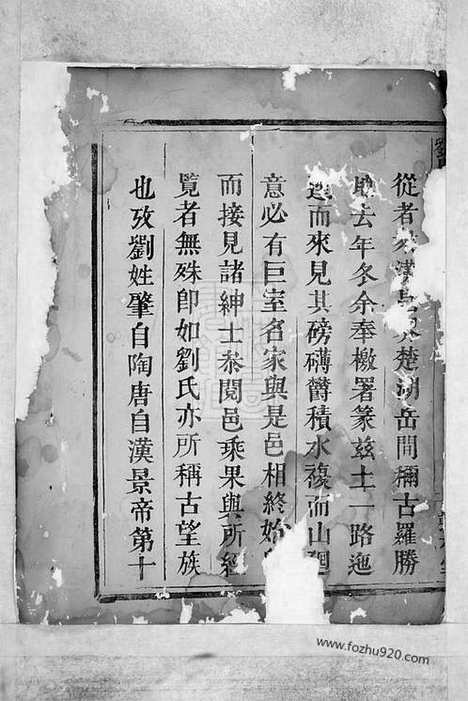 從者 漢 楚湖岳間稱古羅勝
去年冬余奉檄署篆兹土一路迤
而來見其磅礴欝積水複而山廻
意必有巨室名家與是邑相終始
而接見諸紳士叅閱邑乘果與所經
覧者無殊卽如劉氏亦所稱古望族
也攷劉姓肇自陶唐自漢景帝第十
www.fozhu920.com